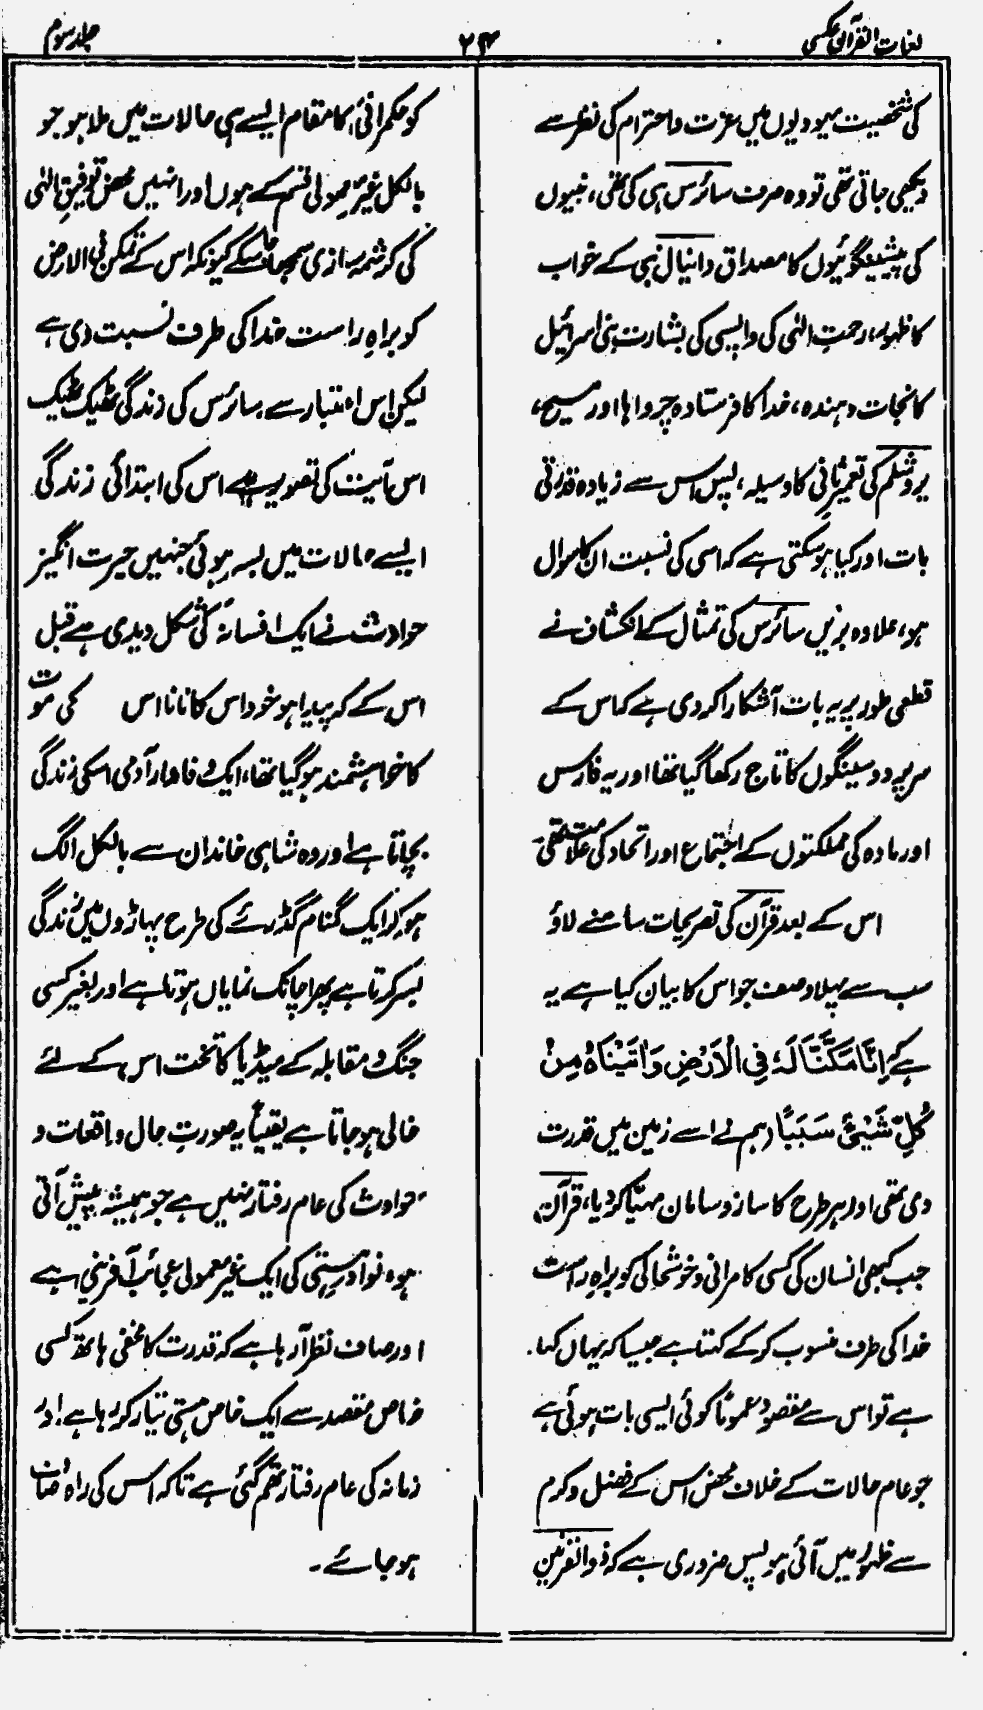 لغات القرآن عکسی
۲۶۴
جلد سوم
کی شخصیت یہودیوں میں عزت و احترام کی نظر سے
دیکھی جاتی تھی تو وہ صرف سائرس ہی کی تھی، نبیوں
کی پیشینگوئیوں کا مصداق دانیال نبی کے خواب
کا ظہور، رحمتِ الٰہی کی واپسی کی بشارت بنی اسرائیل
کا نجات دہندہ، خدا کا فرستادہ چرواہا اور مسیح،
یروشلم کی تعمیرِ ثانی کا وسیلہ، پس اس سے زیادہ قدرتی
بات اور کیا ہو سکتی ہے کہ اسی کی نسبت ان کا سوال
ہو، علاوہ بریں سائرس کی تمثال کے انکشاف نے
قطعی طور پر یہ بات آشکارا کر دی ہے کہ اس کے
سر پر دو سینگوں کا تاج رکھا گیا تھا اور یہ فارس
اور مادہ کی مملکتوں کے اجتماع اور اتحاد کی علامت تھی
اس کے بعد قرآن کی تصریحات سامنے لاؤ
سب سے پہلا وصف جو اس کا بیان کیا ہے یہ
ہے کہ اِنَّا مَکَّنَّا لَهٗ فِی الْاَرْضِ وَاٰتَیْنَاهُ مِنْ
کُلِّ شَیْئٍ سَبَبًا (ہم نے اسے زمین میں قدرت
دی تھی اور ہر طرح کا ساز و سامان مہیا کر دیا، قرآن
جب کبھی انسان کی کسی کامرانی و خوشحالی کو براہِ راست
خدا کی طرف منسوب کر کے کہتا ہے جیسا کہ یہاں کہا
ہے تو اس سے مقصود عموماً کوئی ایسی بات ہوتی ہے
جو عام حالات کے خلاف محض اس کے فضل و کرم
سے ظہور میں آئی ہو پس ضروری ہے کہ ذوالقرنین
کو حکمرانی کا مقام ایسے ہی حالات میں ملا ہو جو
بالکل غیر معمولی قسم کے ہوں اور انہیں محض توفیقِ الٰہی
کی کرشمہ سازی سمجھا جا سکے کیونکہ اس کے تمکن فی الارض
کو براہِ راست خدا کی طرف نسبت دی ہے
لیکن اس اعتبار سے سائرس کی زندگی ٹھیک ٹھیک
اس آیت کی تصویر ہے اس کی ابتدائی زندگی
ایسے حالات میں بسر ہوئی جنہیں حیرت انگیز
حوادث نے ایک افسانہ کی شکل دیدی ہے قبل
اس کے کہ پیدا ہو خود اس کا نانا اس کی موت
کا خواہشمند ہو گیا تھا، ایک وفادار آدمی اسکی زندگی
بچاتا ہے اور وہ شاہی خاندان سے بالکل الگ
ہو کر ایک گمنام گڈرئے کی طرح پہاڑوں میں زندگی
بسر کرتا ہے پھر اچانک نمایاں ہوتا ہے اور بغیر کسی
جنگ و مقابلہ کے میڈیا کا تخت اس کے لئے
خالی ہو جاتا ہے یقیناً یہ صورتِ حال واقعات و
حوادث کی عام رفتار نہیں ہے جو ہمیشہ پیش آتی
ہو، نوادرِ ہستی کی ایک غیر معمولی عجائب آفرینی ہے
اور صاف نظر آ رہا ہے کہ قدرت کا مخفی ہاتھ کسی
خاص مقصد سے ایک خاص ہستی تیار کر رہا ہے اور
زمانہ کی عام رفتار تھم گئی ہے تاکہ اس کی راہ صاف
ہو جائے۔